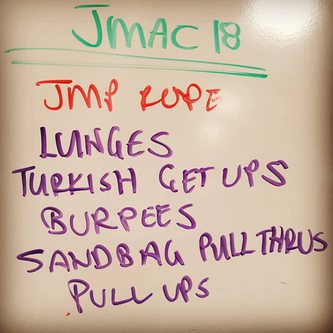 JMAC 18
JMP ROPE
LUNGES
TURKISH GET UPS
BURPEES
SANDBAG PULL THRUS
PULL UPS